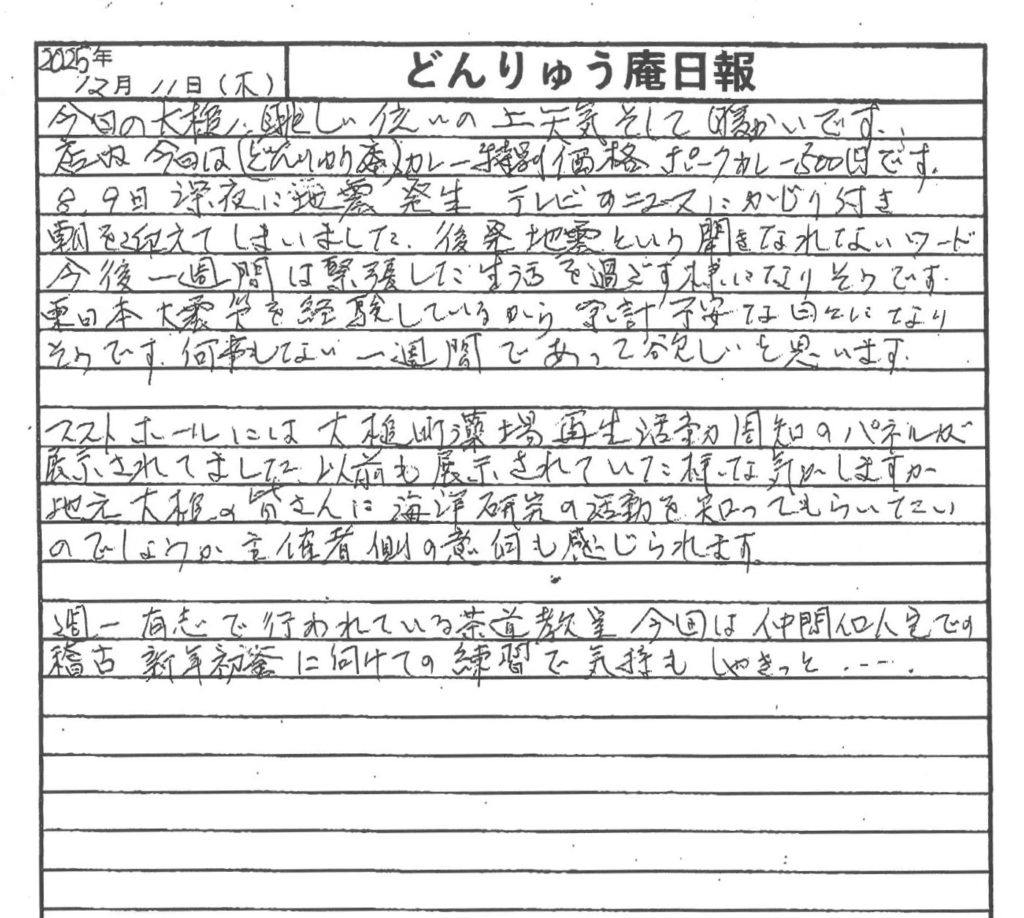 2025年
12月 11日(木)
どんりゅう庵日報
今日の大槌は眩しい位いの上天気そして暖かいです.
店内 今日は(どんりゅう庵)カレー特別価格 ポークカレー500円です.
8,9日 深夜に地震発生 テレビのニュースにかじり付き
朝を迎えてしまいました. 後発地震という聞きなれないワード
今後一週間は緊張した生活を過ごす様になりそうです.
東日本大震災を経験しているから 余計不安な日々になり
そうです. 何事もない一週間であって欲しいと思います.
ホールには大槌町藻場再生活動周知のパネルが
展示されてました. 以前も展示されていた様な気がしますが
地元大槌の皆さんに海洋研究の活動を知ってもらいたい
のでしょうか 主催者側の意向も感じられます.
週一 有志で行われている茶道教室 今回は仲間の人宅での
稽古 新年初釜に向けての練習で気持もしゃきっと・・・・.